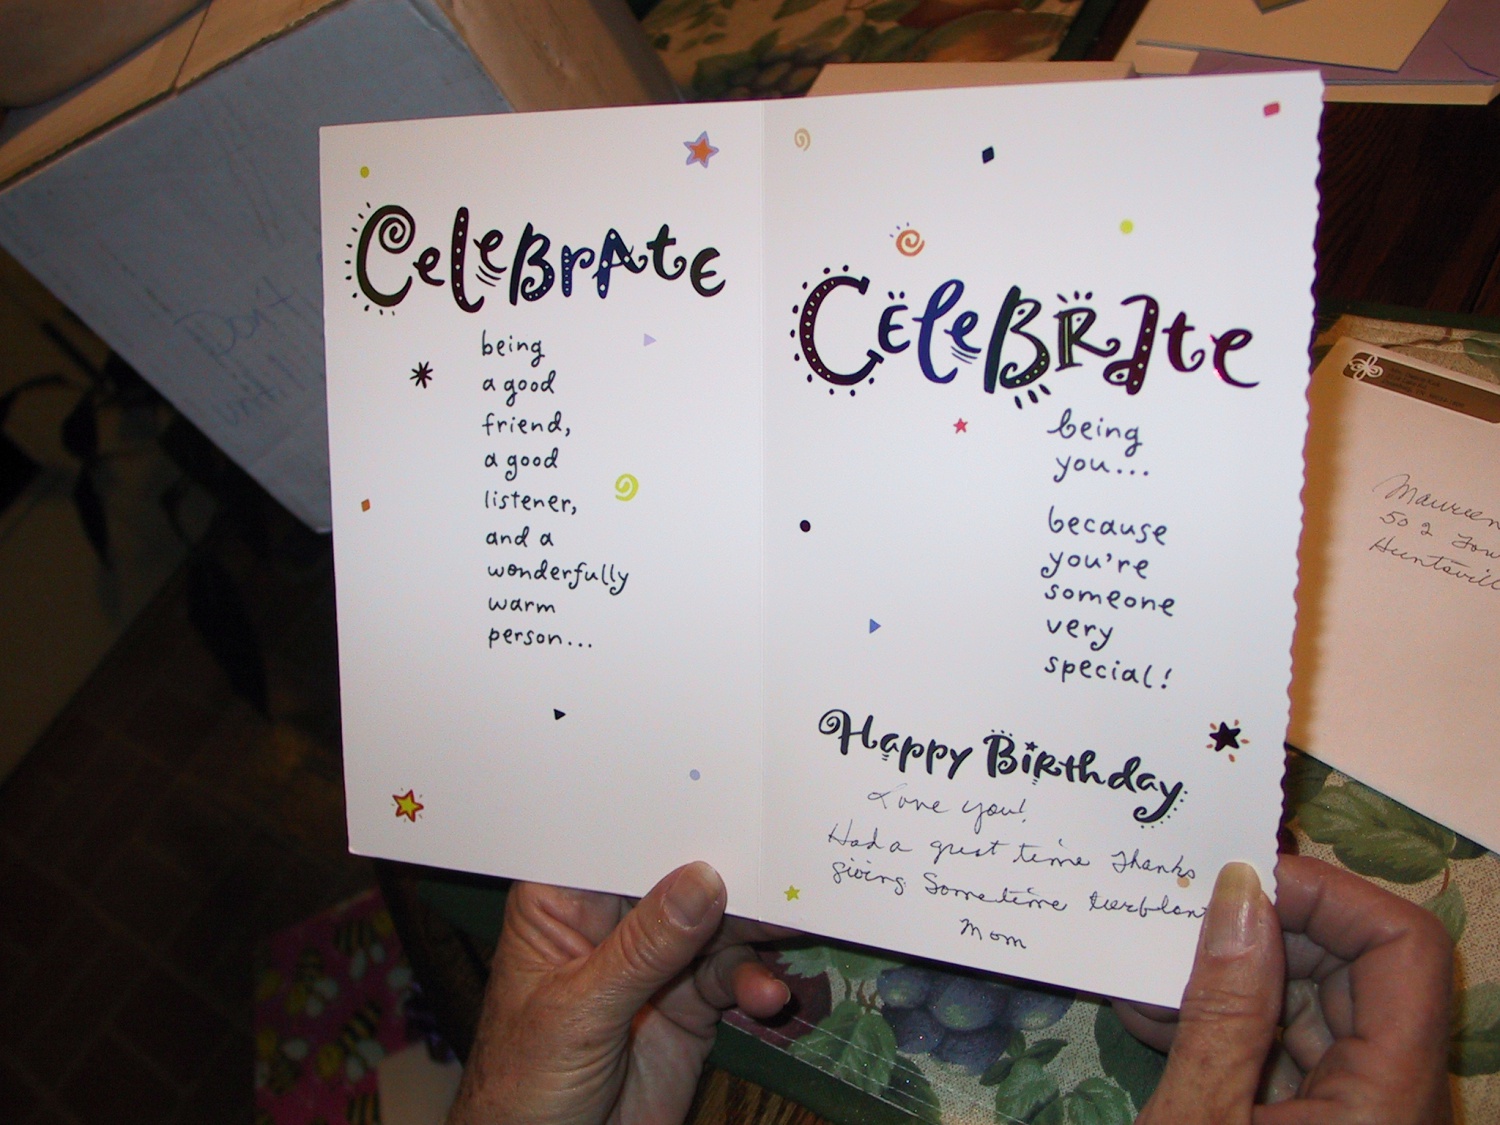 Celebrate
being
a good
friend,
a good
listener,
and a
wonderfully
warm
person...
Celebrate
being
you...
because
you're
someone
very
special!
Happy Birthday
Love you!
Had a great time Thanks
giving Sometime
Mom
Don't
until
Maureen
502
Huntsvill